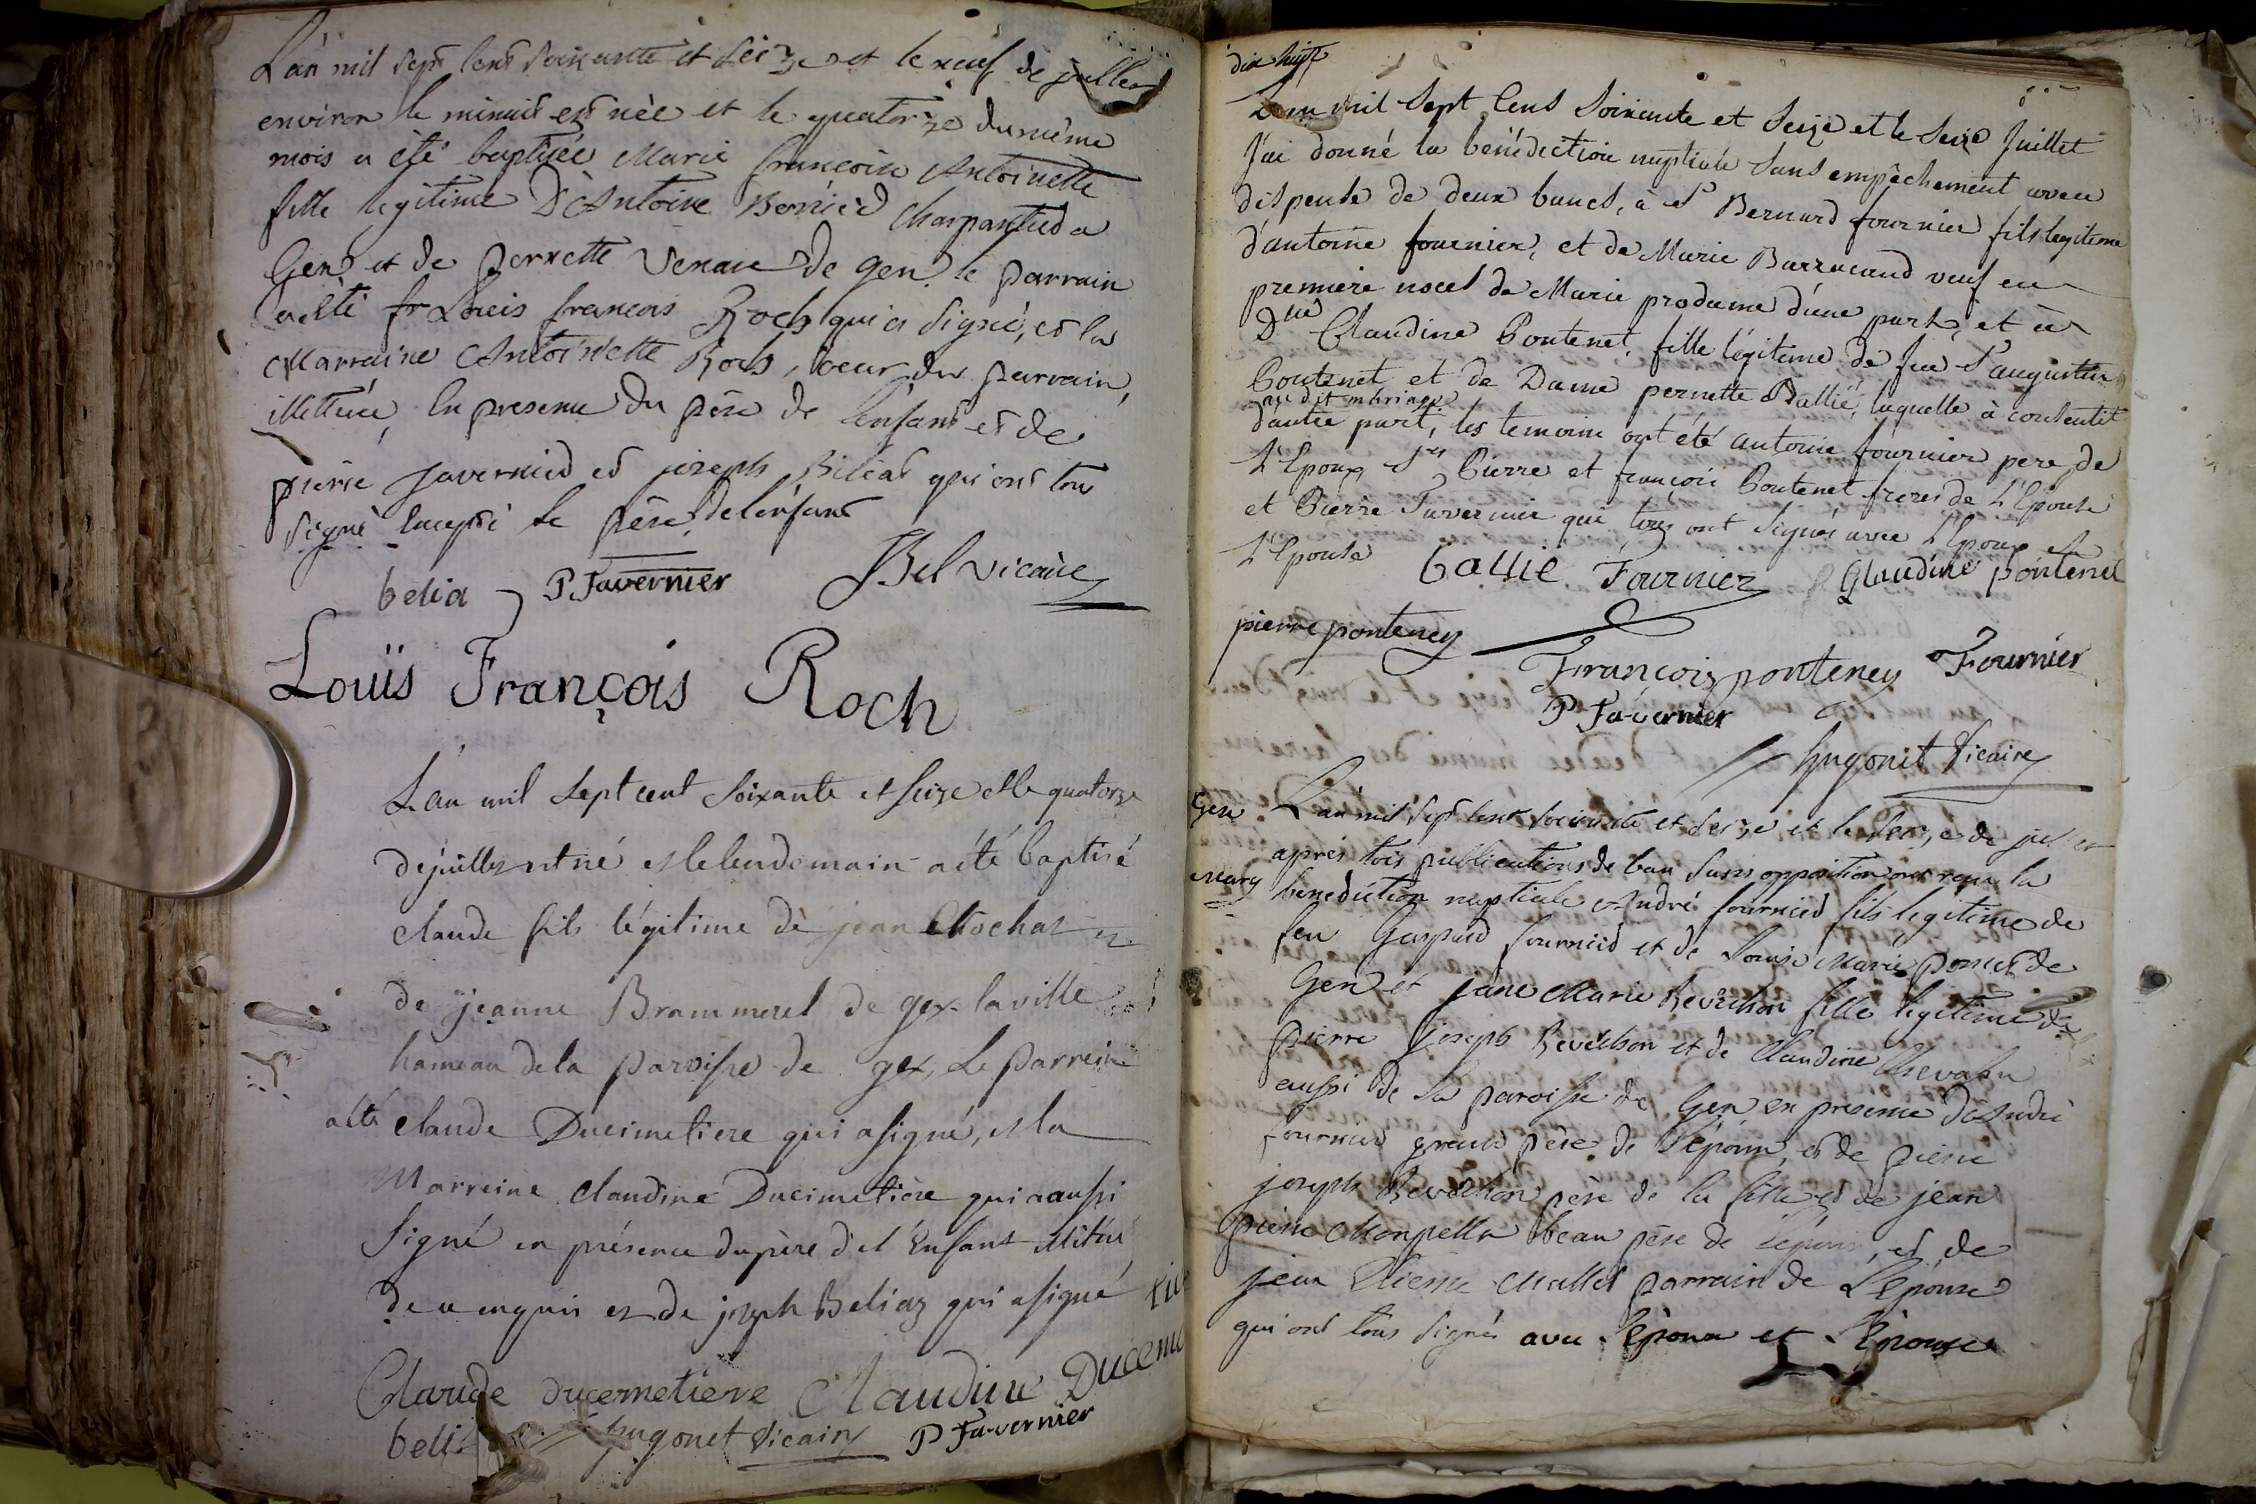 L'an mil sept cent soixante et seize et le neuf de juillet
environ le minuit est née et le quatorze du même
mois a été baptisée Marie françoise Antoinette
fille legitime D'Antoine Bornied charpantied a
Gex et de pernette de gex le parrain
a été fr Louis françois Roch qui a signé, et la
Marraine Antoinette Roch, soeur du parrain,
illettrée, En presence du père de l'enfant et de
pierre favernied et joseph Biliat qui ont tous
signé excepté le père de l'enfant
belia P. Favernier Bel vicaire
Louis François Roch
L'an mil sept cent soixante et seize et le quatorze
de juillet est né et le lendemain a été baptisé
claude fils légitime de jean Chochat et
de jeanne Brammerel de gex la ville
hameau de la paroisse de gex, Le parrein
a été claude Ducimetiere qui a signé, et la
Marreine claudine Ducimetière qui a aussi
signé en présence du père de l'Enfant illitéré
de ce enquis et de joseph Beliaz qui a signé
Claude ducemetiere Claudine Duceme
beli hugonet Vicaire P. Favernier
dix huit
L'an mil Sept Cens Soixante et Seize et le Seize Juillet
J'ai donné la bénédiction nuptiale Sans empêchement avec
dispense de deux bancs, à Sr Bernard fournier fils legitime
d'antoine fournier, et de Marie Barracand veuf en
premiere noces de Marie prodame d'une part, et à
Dlle Claudine Pontenet, fille légitime de feu Sr augustin
Pontenet et de Dame pernette Ballié, laquelle à consentit
au dit mariage
d'autre part, les temoins ont été antoine fournier pere de
L'Epoux Srs Pierre et françois Pontenet freres de L'Epouse
et Pierre Favernier qui tous ont Signés avec L'Epoux et
L'Epouse Gallié Fournier Glaudine pontenet
pierre ponteney
François ponteney Fournier
P. Favernier
hugonet Vicaire
Gex L'an mil sept cent soixante et seize et le seize de juillet
après trois publications de ban sans opposition ont reçu la
Mariag bénédiction nuptiale André fournied fils legitime de
feu Gaspard fournied et de Louise Marie poncet de
Gex et Jane Marie Revèchon fille legitime de
pierre joseph Revèchon et de Claudine Chevalu
aussi de la paroisse de Gex en presence D'André
fournied grand père de l'époux, et de pierre
joseph Revèchon père de la fille et de jean
pierre Monpella beau père de l'époux, et de
jean Mallet parrain de L'Epouse
qui ont tous signés avec l'Epoux et l'Epouse